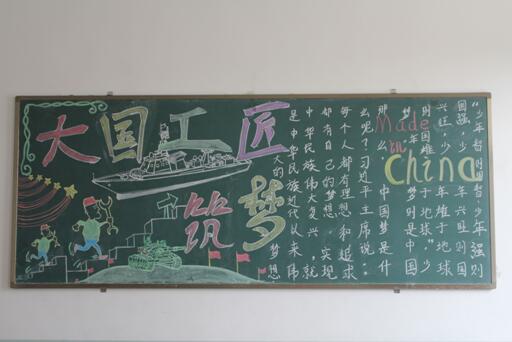 大国工匠
筑梦
Made
in
China
"少年智则国智,少年强则
国强,少年兴旺则国
兴旺,少年雄于地球
则国雄于地球。"少
年梦则是中国
那么,中国梦是什
么呢?习近平主席说:
每个人都有理想和追求
都有自己的梦想。实现
中华民族伟大复兴,就
是中华民族近代以来伟
大的梦想